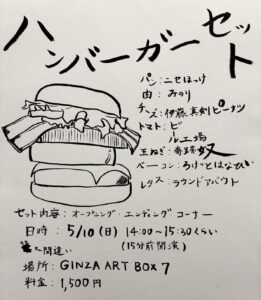 ハンバーガーセット
パン:ニセほっけ
肉:みのり
チーズ:伊藤真剣ピーナツ
トマト:ビール工場
玉ねぎ:奇跡奴
ベーコン:ろけっとはなびい
レタス:ラウンドアバウト
セット内容:オープニング・エンディングコーナー
日時:5/10(日) 14:00~15:30くらい
(15分前開演)
間違い
場所:GINZA ART BOX 7
料金:1,500円